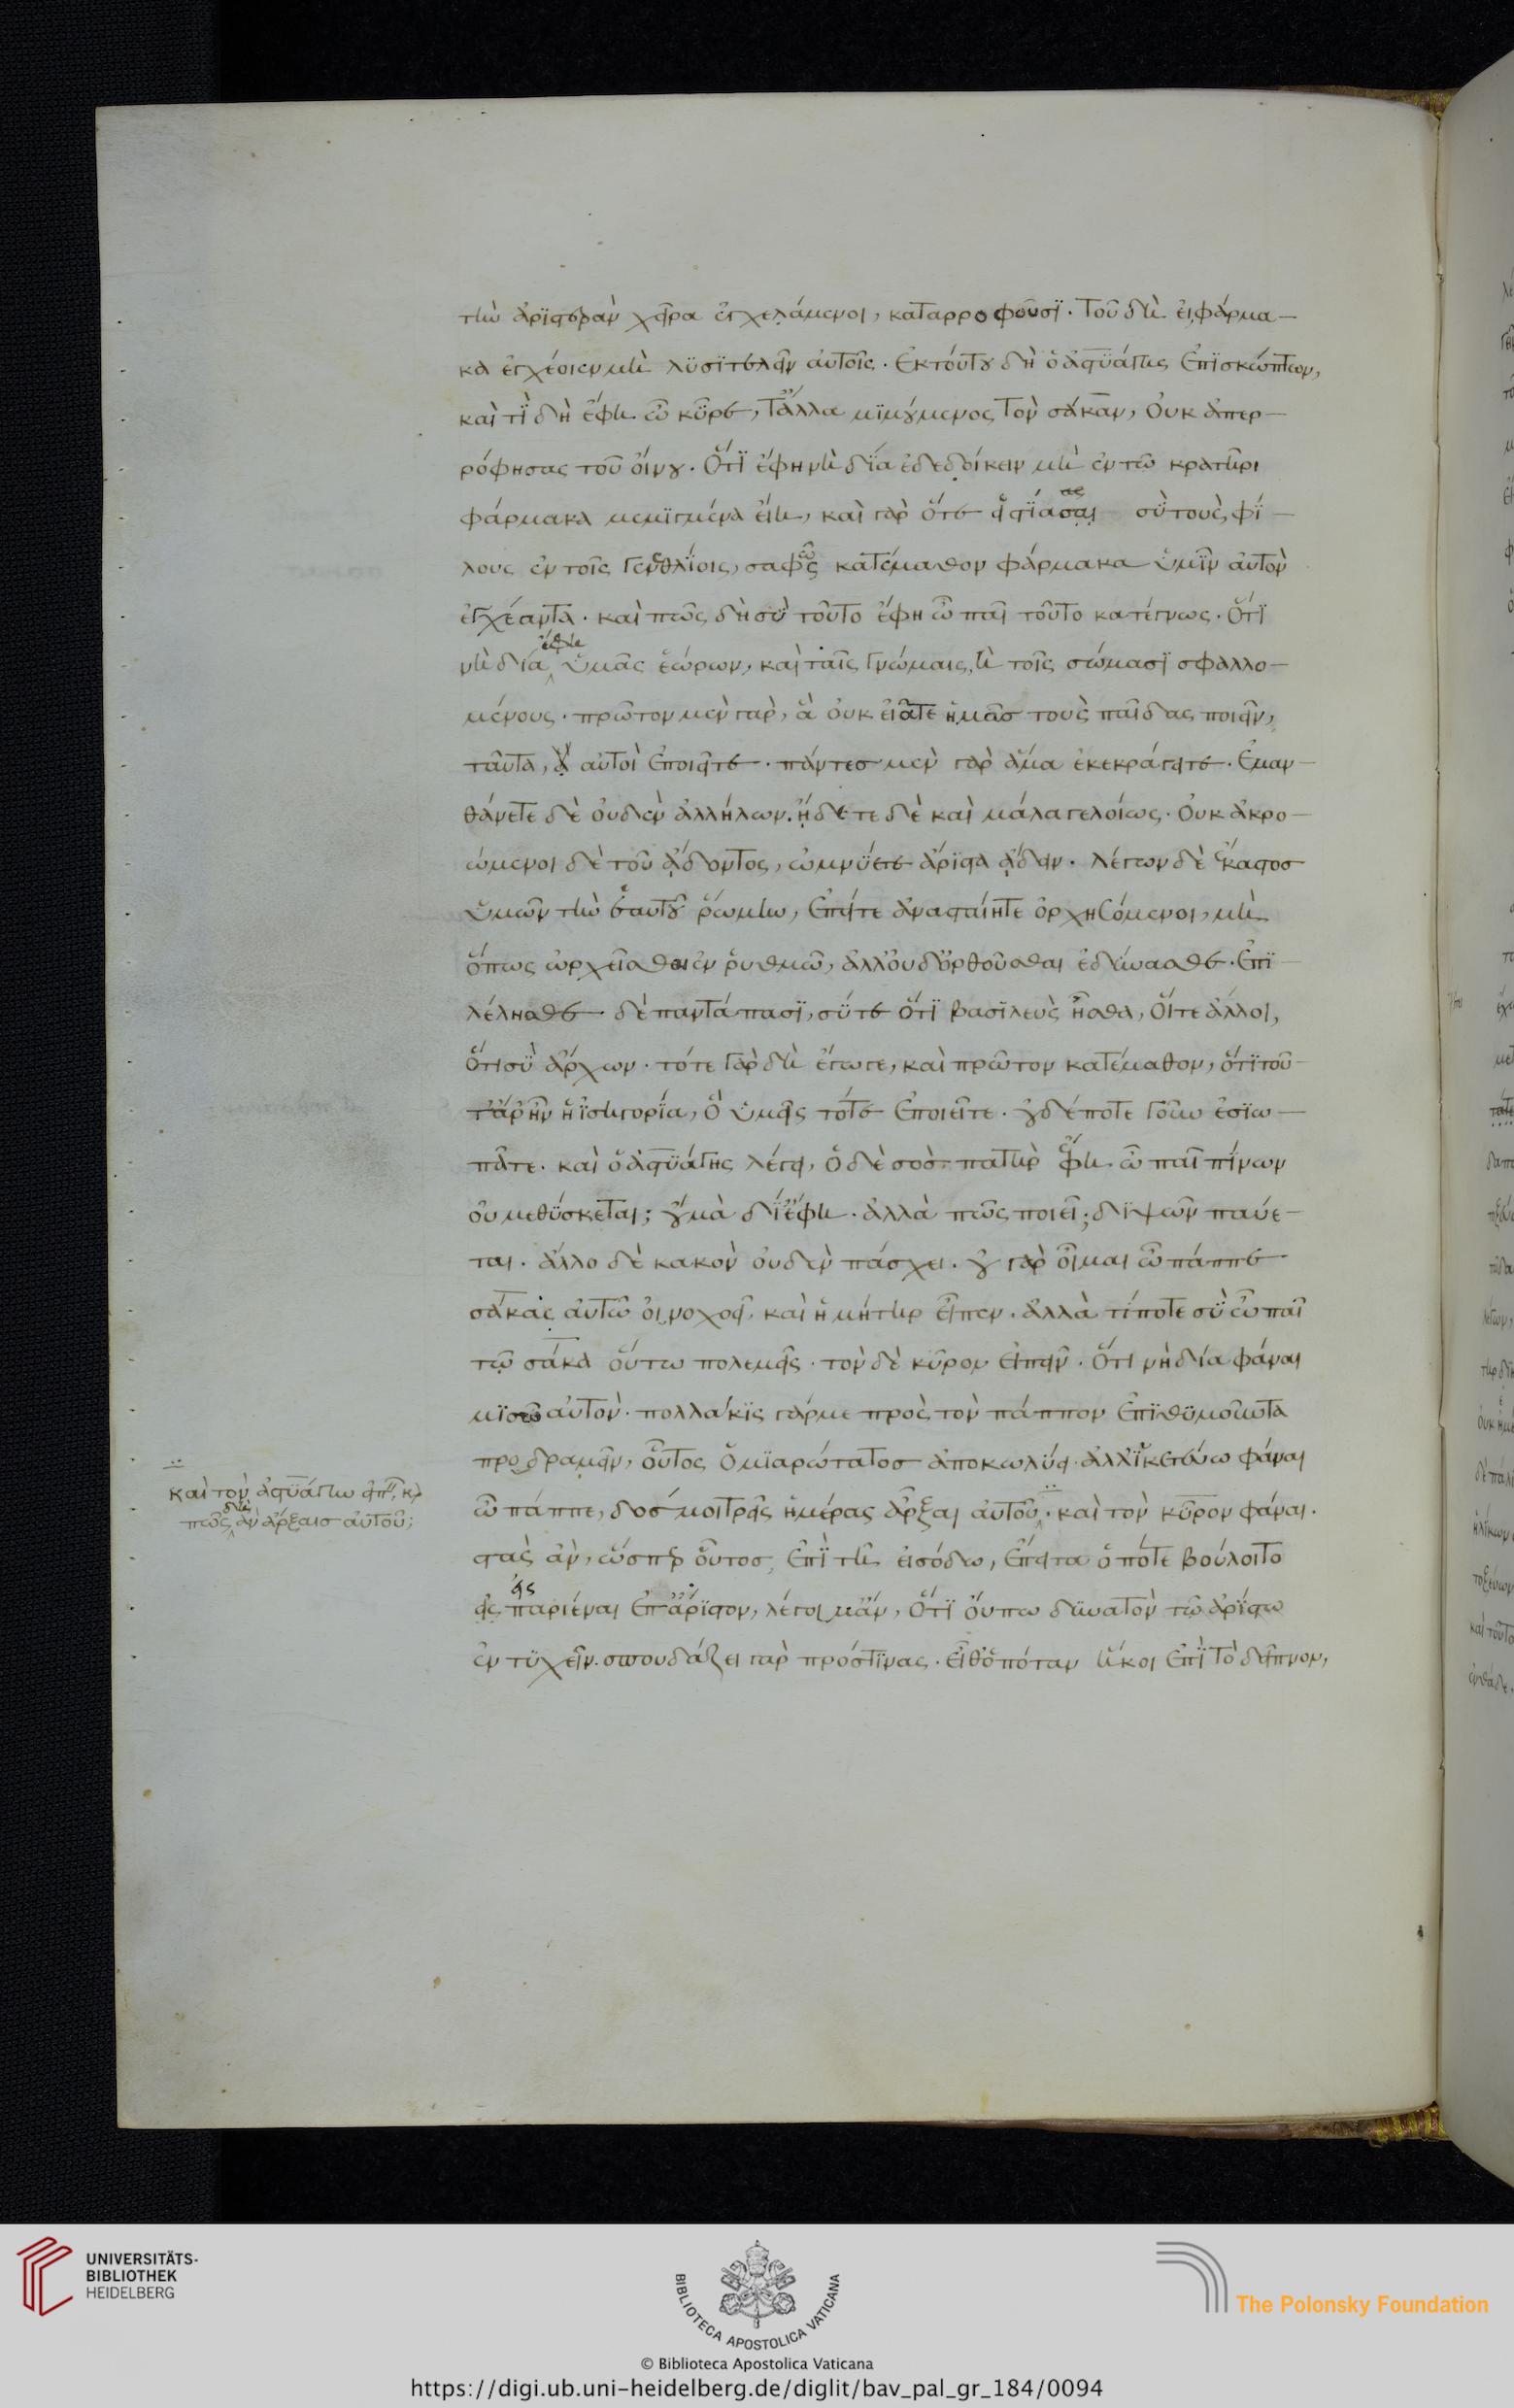 τὴν ἀρϊστερὰν χεῖρα ἐγχεάμενοι, καταρροφοῦσϊ. τοῦ δὴ εἰ φάρμα-
κα ἐγχέοιεν μὴ λϋσϊτελεῖν αὐτοῖς. ἐκ τούτου δὴ ὁ ἀστϋάγης ἐπϊσκώπτων,
καὶ τί δὴ ἔφη ὦ κῦρε, τἄλλα μϊμούμενος τὸν σάκαν, οὐκ ἀπερ-
ρόφησας τοῦ οἴνου. ὅτϊ ἔφη νὴ δία ἐδεδοίκειν μὴ ἐν τῶ κρατῆρι
φάρμακα μεμϊγμένα εἴη, καὶ γὰρ ὅτε εἱστίασας σὺ τοὺς φί-
λους ἐν τοῖς γενεθλίοις, σαφῶς κατέμαθον φάρμακα ὑμῖν αὐτὸν
ἐγχέαντα. καὶ πῶς δὴ σὺ τοῦτο ἔφη ὦ παῖ τοῦτο κατέγνως. ὅτϊ
νὴ δία ἔφη ὑμᾶς ἑώρων, καὶ ταῖς γνώμαις, ἢ τοῖς σώμασϊ σφαλλο-
μένους. πρῶτον μὲν γὰρ, ἃ οὐκ εἰᾶτε ἡμᾶσ τοὺς παῖδας ποιεῖν,
ταῦτα, αὐτοὶ ἐποιεῖτε. πάντεσ μὲν γὰρ ἅμα ἐκεκράγειτε. ἐμαν-
θάνετε δὲ οὐδὲν ἀλλήλων. ᾔδετε δὲ καὶ μάλα γελοίως. οὐκ ἀκρο-
ώμενοι δὲ τοῦ ᾄδοντος, ὠμνύετε ἄρϊστα ᾄδειν. λέγων δὲ ἕκαστοσ
ὑμῶν τὴν ἑαυτοῦ ῥώμην, ἔπειτε ἀνασταίητε ὀρχησόμενοι, μὴ
ὅπως ὠρχεῖσθαι ἐν ῥυθμῶ, ἀλλ' οὐδ' ὀρθοῦσθαι ἐδύνασθε. ἐπϊ-
λέλησθε δὲ παντάπασϊ, σύ τε ὅτϊ βασϊλεὺς ἦσθα, οἵ τε ἄλλοι,
ὅτι σὺ ἄρχων. τότε γὰρ δὴ ἔγωγε, καὶ πρῶτον κατέμαθον, ὅτϊ τοῦ-
τ' ἄρ' ἦν ἡ ἰσηγορία, ὃ ὑμεῖς τότε ἐποιεῖτε. οὐδέποτε γοῦν ἐσϊω-
πᾶτε. καὶ ὁ ἀστϋάγης λέγει, ὁ δὲ σὸσ πατὴρ ἔφη ὦ παῖ πίνων
οὐ μεθύσκεται; οὐ μὰ δί' ἔφη. ἀλλὰ πῶς ποιεῖ; δϊψῶν παύε-
ται. ἄλλο δὲ κακὸν οὐδὲν πάσχει. οὐ γὰρ οἶμαι ὦ πάππε
σάκας αὐτῶ οἰνοχοεῖ. καὶ ἡ μήτηρ εἶπεν. ἀλλὰ τί ποτε σὺ ὦ παῖ
τῶ σάκα οὕτω πολεμεῖς. τὸν δὲ κῦρον εἰπεῖν. ὅτι νὴ δία φάναι
μϊσῶ αὐτὸν. πολλάκϊς γάρ με πρὸς τὸν πάππον ἐπϊθϋμοῦντα
προδραμεῖν, οὗτος ὁ μϊαρώτατοσ ἀποκωλύει. ἀλλ' ἱκετεύω φάναι
ὦ πάππε, δόσ μοι τρεῖς ἡμέρας ἄρξαι αὐτοῦ. καὶ τὸν κῦρον φάναι.
στὰς ἂν, ὥσπερ οὗτοσ, ἐπὶ τῆ εἰσόδω, ἔπειτα ὁπότε βούλοιτο
εἰς παριέναι ἐπ' ἄρϊστον, λέγοιμ' ἂν, ὅτϊ οὔπω δϋνατὸν τῶ ἀρίστω
ἐντϋχεῖν. σπουδάζει γὰρ πρός τϊνας. εἶθ' ὁπόταν ἥκοι ἐπὶ τὸ δεῖπνον,
καὶ τὸν ἀστϋάγην εἰπεῖν, καὶ
πῶς δὴ ἂν ἄρξαισ αὐτοῦ;
UNIVERSITÄTS-
BIBLIOTHEK
HEIDELBERG
BIBLIOTECA APOSTOLICA VATICANA
The Polonsky Foundation
© Biblioteca Apostolica Vaticana
https://digi.ub.uni-heidelberg.de/diglit/bav_pal_gr_184/0094